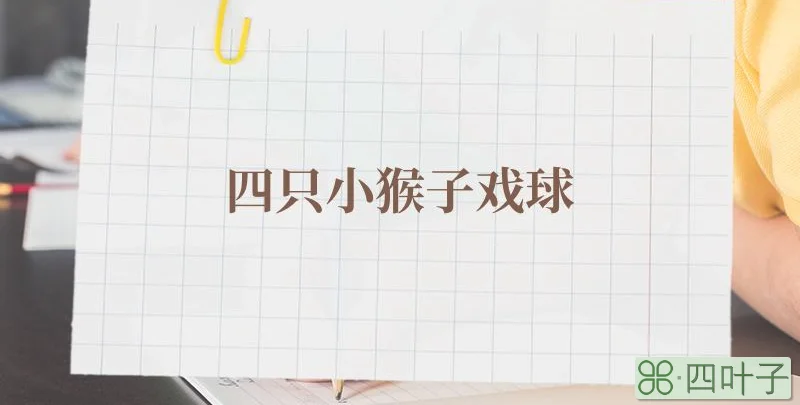 四只小猴子戏球
四叶子